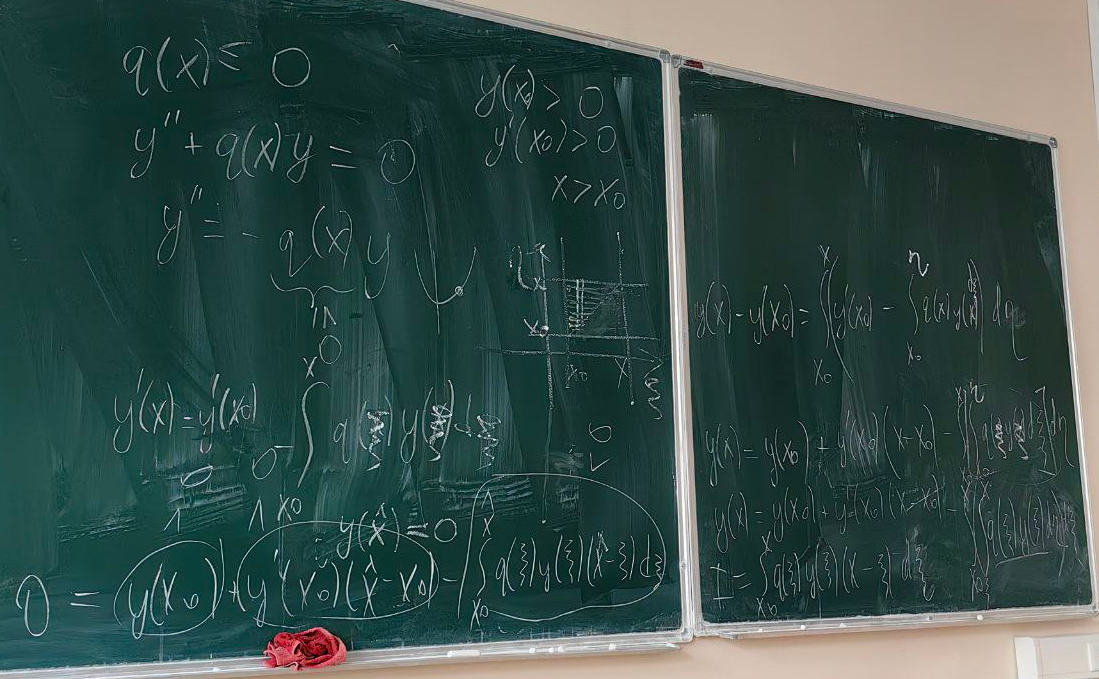 q(x) ≤ 0
y'' + q(x)y = 0
y'' = - q(x) y
0
y(x₀) > 0
y'(x₀) > 0
x > x₀
η
x
x₀
x₀ x ξ
y'(x) = y'(x₀) - ∫_{x₀}^{x} q(ξ) y(ξ) dξ
y(x̂) = 0
0 = y(x₀) + y'(x₀)(x̂ - x₀) - ∫_{x₀}^{x̂} q(ξ) y(ξ)(x̂ - ξ) dξ
y(x) - y(x₀) = ∫_{x₀}^{x} ( y'(x₀) - ∫_{x₀}^{η} q(x) y(x) dξ ) dη
y(x) = y(x₀) + y'(x₀)(x - x₀) - ∫∫ q(ξ) y(ξ) dξ dη
y(x) = y(x₀) + y'(x₀)(x - x₀) - ∫∫ q(ξ) y(ξ) dη dξ
I = ∫_{x₀}^{x} q(ξ) y(ξ)(x - ξ) dξ